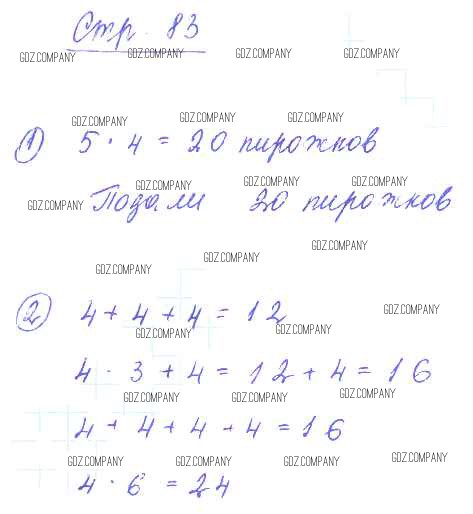 Стр. 83
GDZ.COMPANY GDZ.COMPANY GDZ.COMPANY GDZ.COMPANY
GDZ.COMPANY GDZ.COMPANY GDZ.COMPANY
1) 5 · 4 = 20 пирожков
GDZ.COMPANY GDZ.COMPANY GDZ.COMPANY
GDZ.COMPANY
Подали 20 пирожков
GDZ.COMPANY
GDZ.COMPANY
GDZ.COMPANY
2) 4 + 4 + 4 = 12
GDZ.COMPANY
GDZ.COMPANY GDZ.COMPANY
4 · 3 + 4 = 12 + 4 = 16
GDZ.COMPANY GDZ.COMPANY GDZ.COMPANY
4 + 4 + 4 + 4 = 16
GDZ.COMPANY GDZ.COMPANY GDZ.COMPANY GDZ.COMPANY
4 · 6 = 24